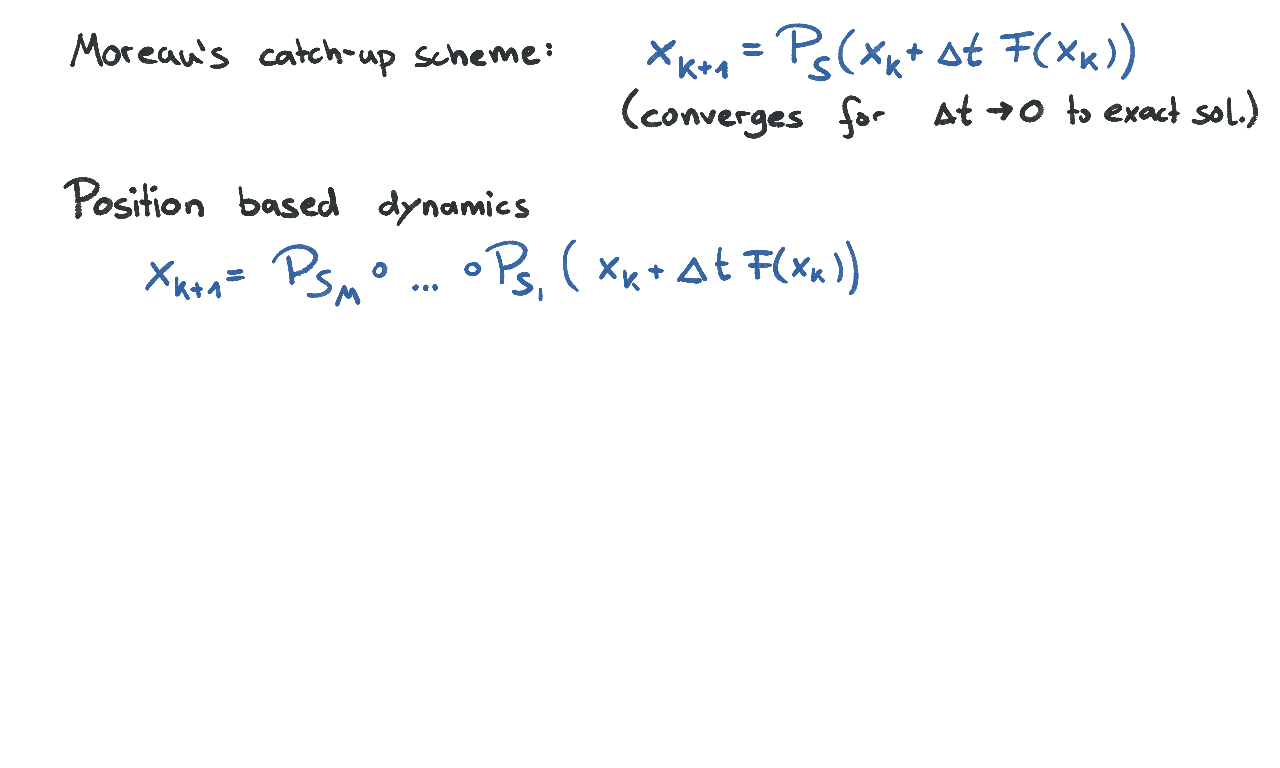 Moreau's catch-up scheme: x_{k+1} = P_S(x_k + Δt F(x_k))
(converges for Δt → 0 to exact sol.)
Position based dynamics
x_{k+1} = P_{S_M} ∘ ... ∘ P_{S_1} (x_k + Δt F(x_k))